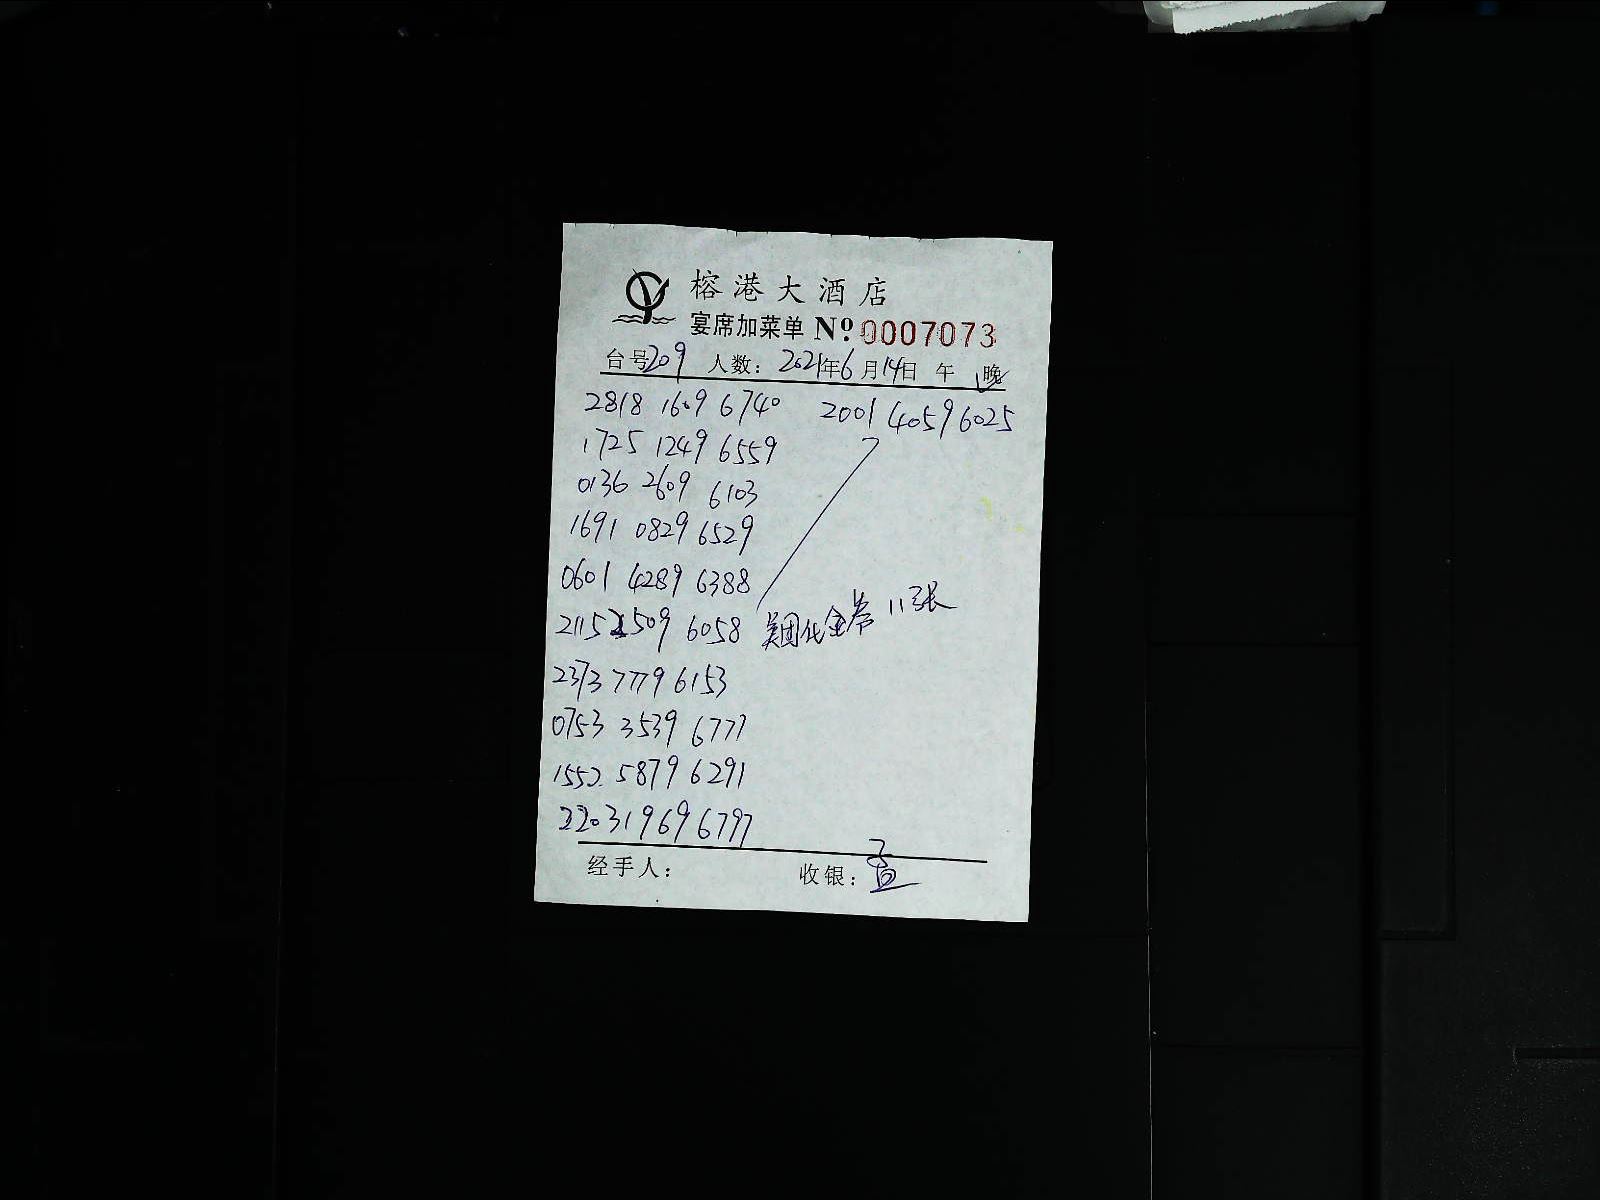 榕港大酒店
宴席加菜单 Nº 0007073
台号209 人数: 2021年6月14日 午 晚
2818 1609 6740 2001 4059 6025
1725 1249 6559
0136 2609 6103
1691 0829 6529
0601 4289 6388
2115 2509 6058 美团代金券 11张
2373 7779 6153
0753 3539 6777
1552 5879 6291
2203 1969 6797
经手人: 收银: